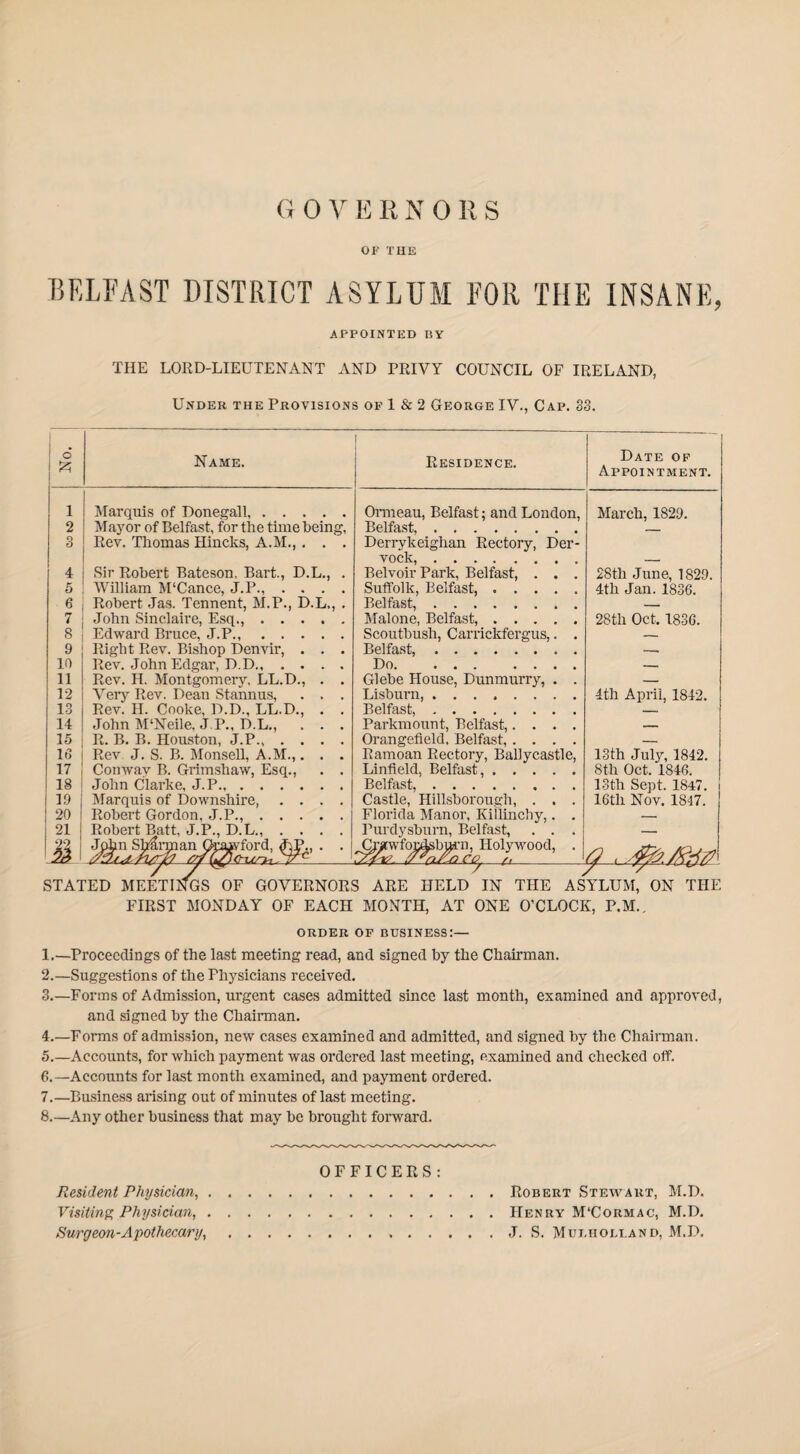 GOVERNORS
OF THE
BELFAST DISTRICT ASYLUM FOR THE INSANE,
APPOINTED BY
THE LORD-LIEUTENANT AND PRIVY COUNCIL OF IRELAND,
UNDER THE PROVISIONS OF 1 & 2 GEORGE IV., CAP. 33.
No. NAME. RESIDENCE. DATE OF APPOINTMENT.
1 Marquis of Donegall, . . . . . Ormeau, Belfast; and London, March, 1829.
2 Mayor of Belfast, for the time being, Belfast, . . . . . . . . —
3 Rev. Thomas Hincks, A.M., . . . Derrykeighan Rectory, Der-
vock, . . . . . . . . —
4 Sir Robert Bateson, Bart., D.L., . Belvoir Park, Belfast, . . . 28th June, 1829.
5 William M‘Cance, J.P., . . . . Suffolk, Belfast, . . . . . 4th Jan. 1836.
6 Robert Jas. Tennent, M.P., D.L., . Belfast, . . . . . . . . —
7 John Sinclaire, Esq., . . . . . Malone, Belfast, . . . . . 28th Oct. 1836.
8 Edward Bruce, J.P., . . . . . Scoutbush, Carrickfergus, . . —
9 Right Rev. Bishop Denvir, . . . Belfast, . . . . . . . . —
10 Rev. John Edgar, D.D., . . . . Do. . . . . . . . —
11 Rev. H. Montgomery, LL.D., . . Glebe House, Dunmurry, . . —
12 Very Rev. Dean Stannus, . . . Lisburn, . . . . . . . . 4th April, 1842.
13 Rev. H. Cooke, D.D., LL.D., . . Belfast, . . . . . . . . —
14 John M‘Neile, J.P., D.L., . . . Parkmount, Belfast, . . . . —
15 R. B. B. Houston, J.P., . . . . Orangefield, Belfast, . . . . —
16 Rev J. S. B. Monsell, A.M., . . . Ramoan Rectory, Ballycastle, 13th July, 1842.
17 Conway B. Grimshaw, Esq., . . Linfield, Belfast, . . . . . 8th Oct. 1846.
18 John Clarke, J.P., . . . . . . Belfast, . . . . . . . . 13th Sept. 1847.
19 Marquis of Downshire, . . . . Castle, Hillsborough, . . . 16th Nov. 1847.
20 Robert Gordon, J.P., . . . . . Florida Manor, Killinchy, . . —
21 Robert Batt, J.P., D.L., . . . . Purdysburn, Belfast, . . . —
22 John Sharman Crawford, J.P., . . Crawfordsburn, Holywood, .
23
STATED MEETINGS OF GOVERNORS ARE HELD IN THE ASYLUM, ON THE
FIRST MONDAY OF EACH MONTH, AT ONE O'CLOCK, P.M.
ORDER OF BUSINESS:—
1.—Proceedings of the last meeting read, and signed by the Chairman.
2.—Suggestions of the Physicians received.
3.—Forms of Admission, urgent cases admitted since last month, examined and approved,
and signed by the Chairman.
4.—Forms of admission, new cases examined and admitted, and signed by the Chairman.
5.—Accounts, for which payment was ordered last meeting, examined and checked off.
6.—Accounts for last month examined, and payment ordered.
7.—Business arising out of minutes of last meeting.
8.—Any other business that may be brought forward.
OFFICERS:
Resident Physician, . . . . . . . . . . . . . . . ROBERT STEWART, M.D.
Visiting Physician, . . . . . . . . . . . . . . . HENRY M‘CORMAC, M.D.
Surgeon-Apothecary, . . . . . . . . . . . . . . J. S. MULHOLLAND, M.D.